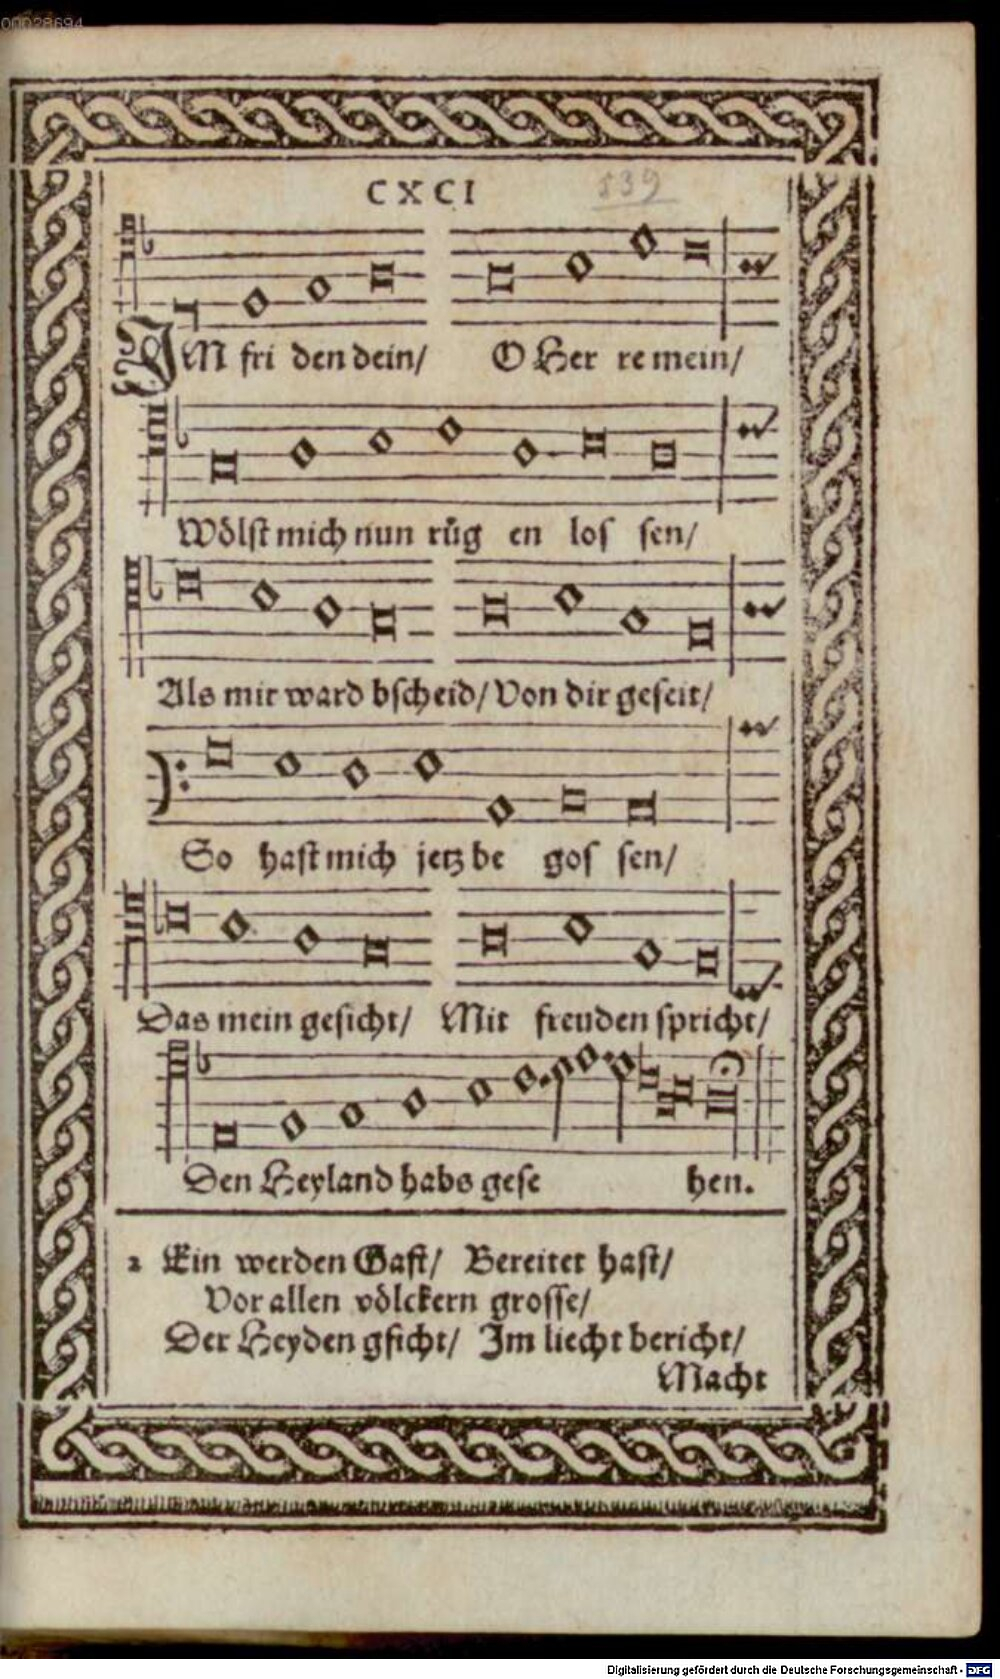 00028694
CXCI
539
IM fri den dein/ O Her re mein/
Wölst mich nun růg en los sen/
Als mir ward bscheid/ Von dir geseit/
So hast mich jetz be gos sen/
Das mein gesicht/ Mit freuden spricht/
Den Heyland habs gese hen.
2 Ein werden Gast/ Bereitet hast/
Vor allen völckern grosse/
Der Heyden gsicht/ Im liecht bericht/
Macht
Digitalisierung gefördert durch die Deutsche Forschungsgemeinschaft - DFG